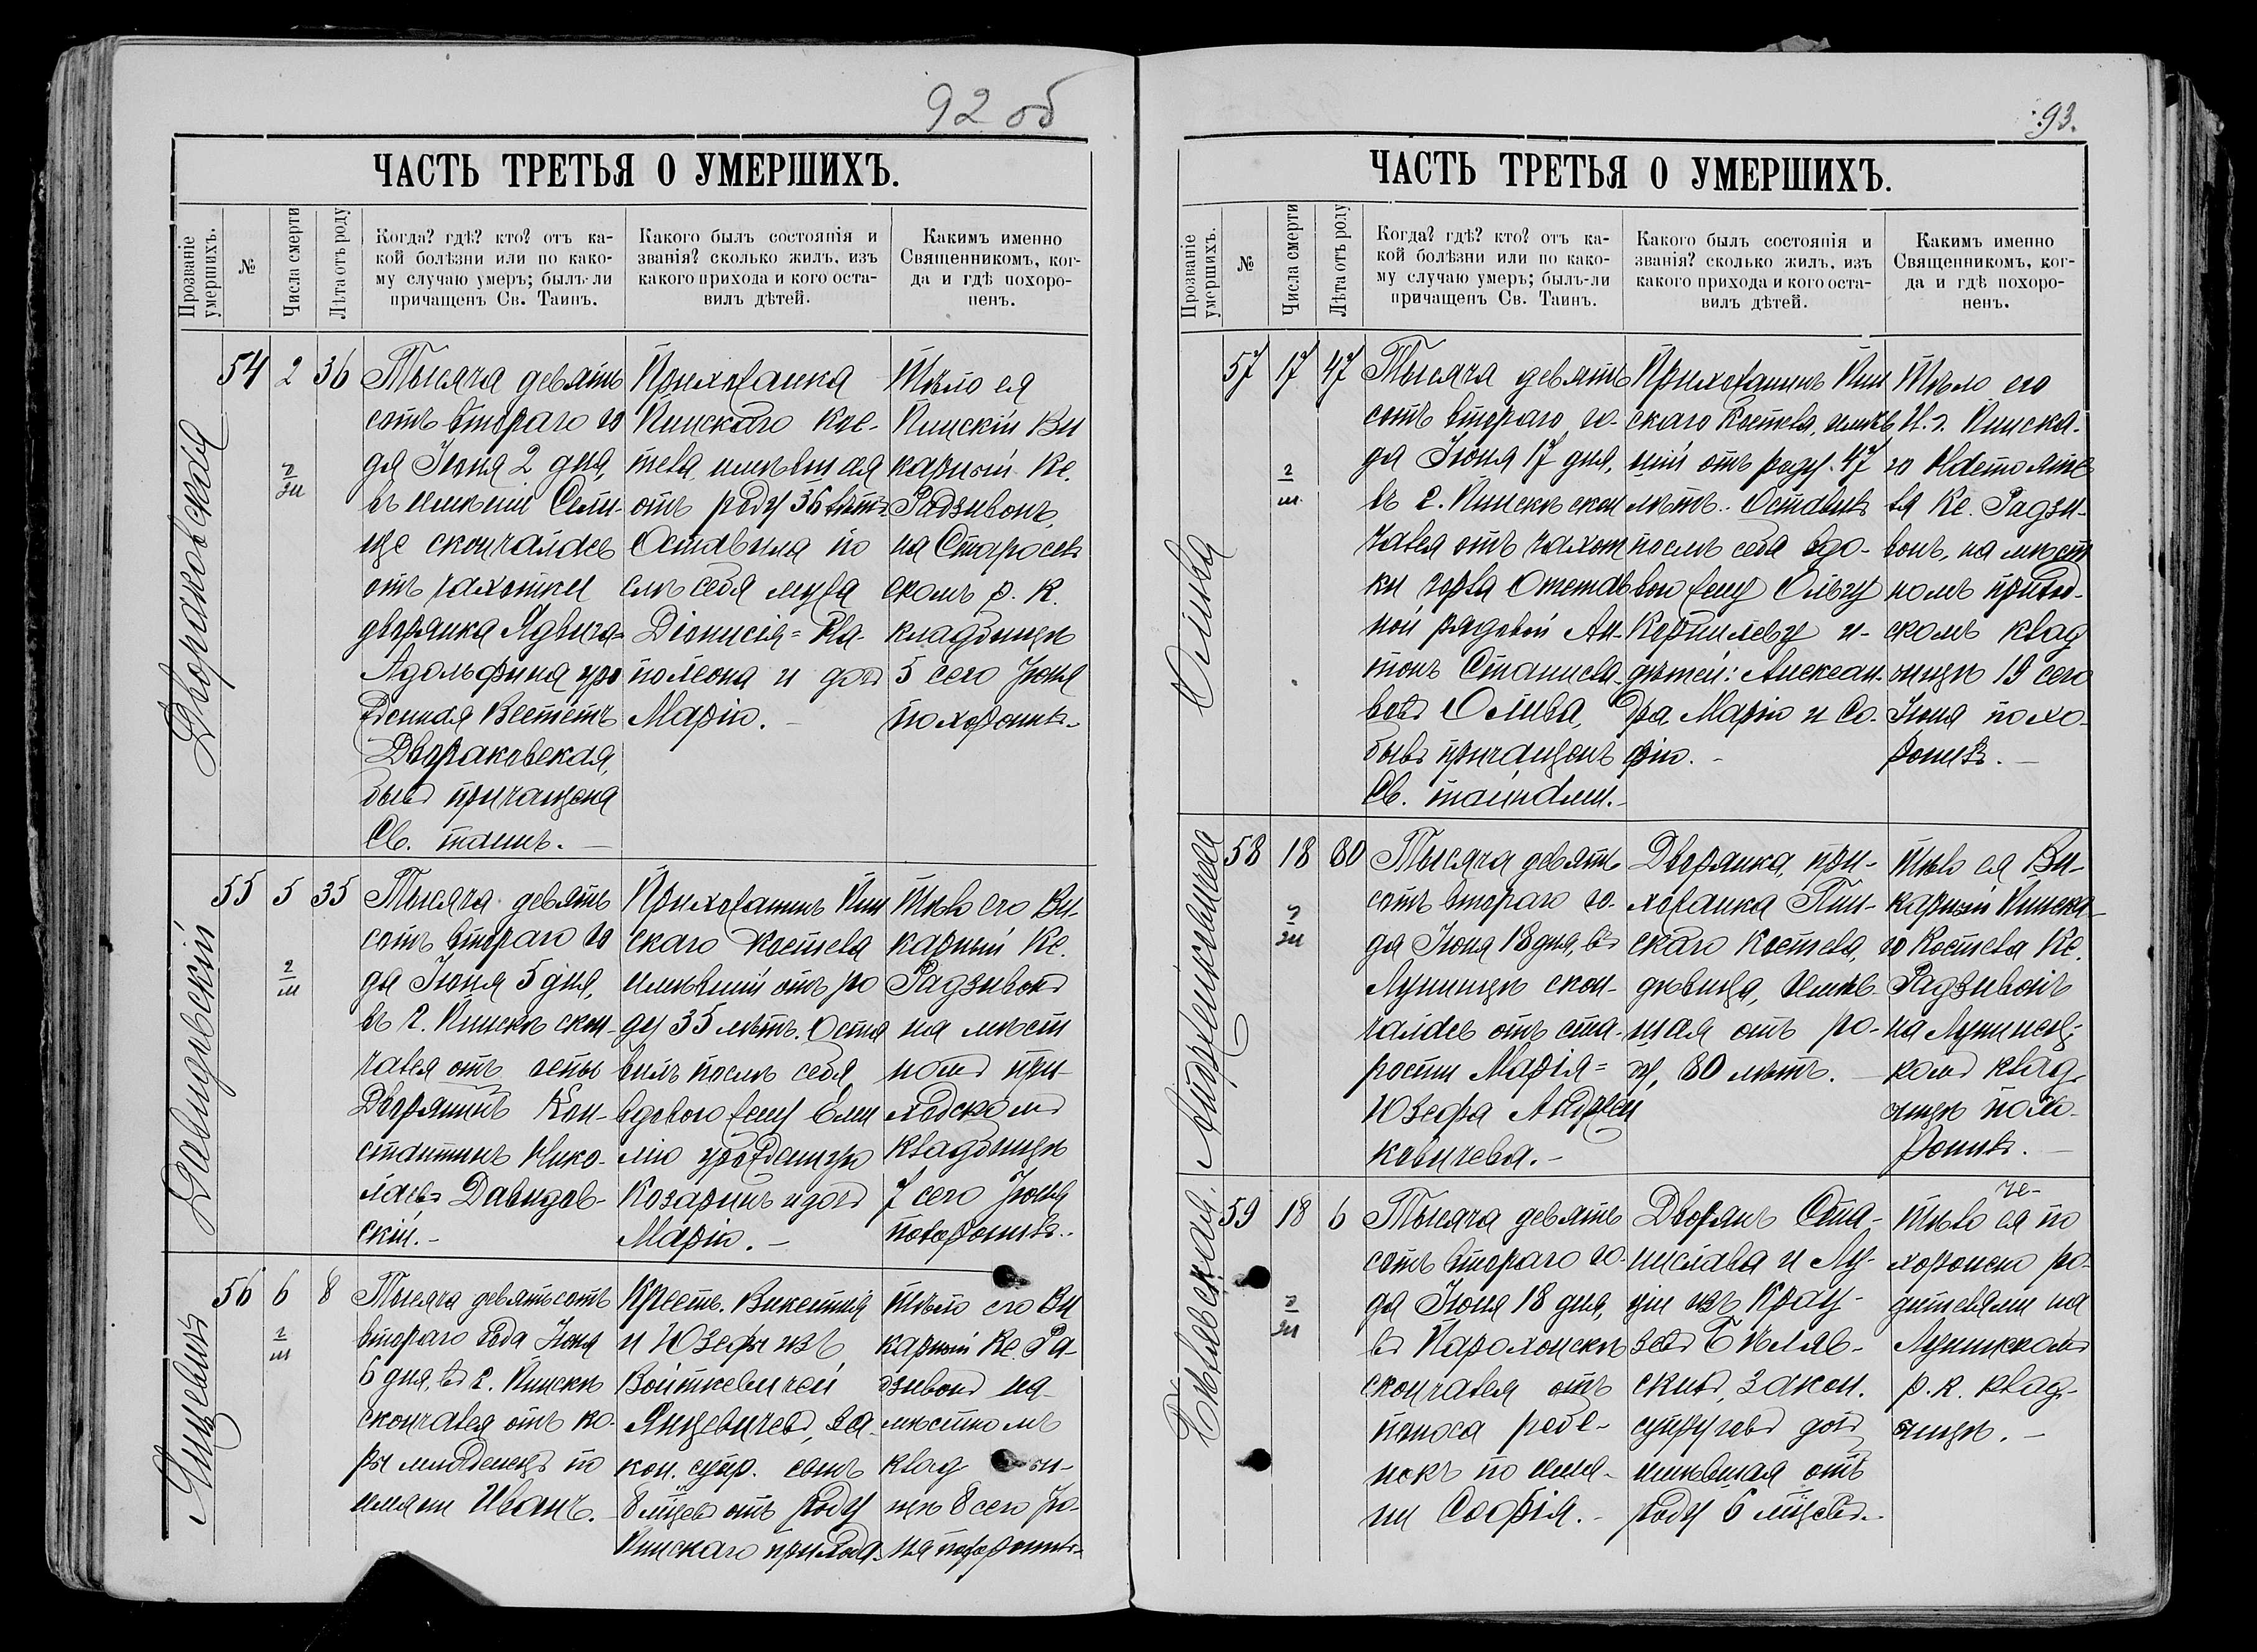 92 об
ЧАСТЬ ТРЕТЬЯ О УМЕРШИХЪ.
Прозваніе умершихъ.
№
Числа смерти
Лѣта отъ роду
Когда? гдѣ? кто? отъ ка-
кой болѣзни или по како-
му случаю умеръ; былъ-ли
причащенъ Св. Таинъ.
Какого былъ состоянія и
званія? сколько жилъ, изъ
какого прихода и кого оста-
вилъ дѣтей.
Какимъ именно
Священникомъ, ког-
да и гдѣ похоро-
ненъ.
Двораковская
54
2
36
Тысяча девять
сотъ втораго го
да Іюня 2 дня,
въ имѣніи Сели-
ще скончалась
отъ чахотки
дворянка Ядвига-
Адольфина уро
жденная
Двораковская,
бывъ причащена
Св. таинъ. —
Прихожанка
Пинскаго Кос-
тела, имѣвшая
отъ роду 36 лѣтъ.
Оставила по
слѣ себя мужа
Діонисія = На-
полеона и дочь
Марію. —
Тѣло ея
Пинскій Ви
карный Кс.
Радзивонъ,
на Старосел
скомъ р. к.
кладбищѣ
5 сего Іюня
похоронилъ.
Давидовскій
55
5
35
Тысяча девять
сотъ втораго го
да Іюня 5 дня,
въ г. Пинскѣ скон-
чался отъ
Дворянинъ Кон-
стантинъ Нико-
лаевъ Давидов-
скій. —
Прихожанинъ Пин
скаго костела
имѣвшій отъ ро
ду 35 лѣтъ. Оста
вилъ послѣ себя
вдовою жену Еми
лію урожденную
Козаринъ и дочь
Марію. —
Тѣло его Ви-
карный Кс.
Радзивонъ
на мѣст
номъ при-
ходскомъ
кладбищѣ
7 сего Іюня
похоронилъ.
Янцевичъ
56
6
8
Тысяча девятьсотъ
втораго года Іюня
6 дня, въ г. Пинскѣ
скончался отъ ко-
ри младенецъ по
имени Иванъ.
Крест. Викентія
и Юзефы изъ
Войткевичей
Янцевичевъ, за-
кон. супр. сынъ
8 мцевъ отъ роду
Пинскаго прихода.
Тѣло его Ви
карный Кс. Ра-
дзивонъ на
мѣстномъ
клад би-
щѣ 8 сего Ію-
ня похоронилъ.
93.
ЧАСТЬ ТРЕТЬЯ О УМЕРШИХЪ.
Прозваніе умершихъ.
№
Числа смерти
Лѣта отъ роду
Когда? гдѣ? кто? отъ ка-
кой болѣзни или по како-
му случаю умеръ; былъ-ли
причащенъ Св. Таинъ.
Какого былъ состоянія и
званія? сколько жилъ, изъ
какого прихода и кого оста-
вилъ дѣтей.
Какимъ именно
Священникомъ, ког-
да и гдѣ похоро-
ненъ.
Олива
57
17
47
Тысяча девять
сотъ втораго го-
да Іюня 17 дня,
въ г. Пинскѣ скон
чался отъ чахот
ки горла Отстав
ной рядовой Ан-
тонъ Станисла-
вовъ Олива,
бывъ причащенъ
Св. тайнами. -
Прихожанинъ Пин
скаго Костела, имѣв
шій отъ роду 47
лѣтъ. Оставивъ
послѣ себя вдо-
вою жену Ольгу
Корнилевну и
дѣтей: Алексан-
дра, Марію и Со-
фію. -
Тѣло его
И. д. Пинска-
го Настояте
ля Кс. Радзи-
вонъ, на мѣст
номъ приход-
скомъ клад
бищѣ 19 сего
Іюня похо-
ронилъ. —
Андрейковичева
58
18
80
Тысяча девять
сотъ втораго го-
да Іюня 18 дня, въ
Лунинцѣ скон-
чалась отъ ста-
рости Марія =
Юзефа Андрей
ковичева. -
Дворянка, при-
хожанка Пин-
скаго Костела,
дѣвица, имѣв-
шая отъ ро-
ду, 80 лѣтъ. —
Тѣло ея Ви-
карный Пинска-
го Костела Кс.
Радзивонъ
на Лунинец-
комъ клад-
бищѣ похо-
ронилъ. —
Бѣлявская.
59
18
6
Тысяча девять
сотъ втораго го-
да Іюня 18 дня,
въ Парохонскѣ
скончался отъ
поноса ребе-
нокъ по име-
ни Софія. -
Дворянъ Ста-
нислава и Лу-
ціи изъ Крау-
зевъ Бѣляв-
скихъ, закон.
супруговъ дочь
имѣвшая отъ
роду 6 мцевъ.
Тѣло ея по
хоронено ро-
дителями на
Лунинскомъ
р. к. клад-
бищѣ. —